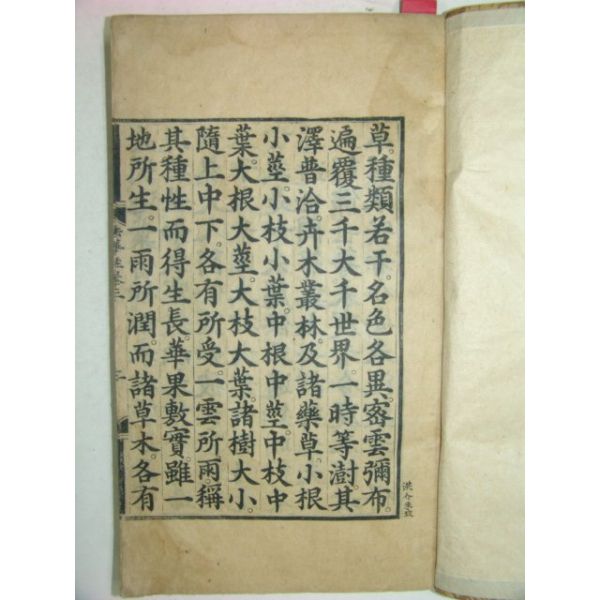 草。種類若干。名色各異。密雲彌布。
遍覆三千大千世界。一時等澍。其
澤普洽。卉木叢林。及諸藥草。小根
小莖。小枝小葉。中根中莖。中枝中
葉。大根大莖。大枝大葉。諸樹大小。
隨上中下。各有所受。一雲所雨。稱
其種性而得生長。華果敷實。雖一
地所生。一雨所潤。而諸草木。各有